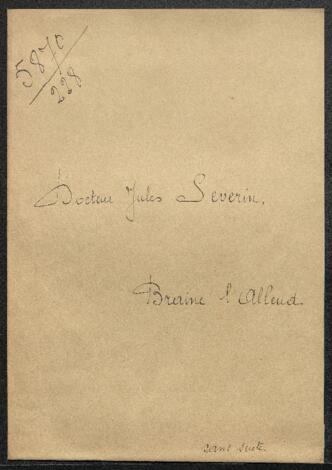 5870/228
Docteur Jules Severin,
Braine l'Alleud.
sans suite.